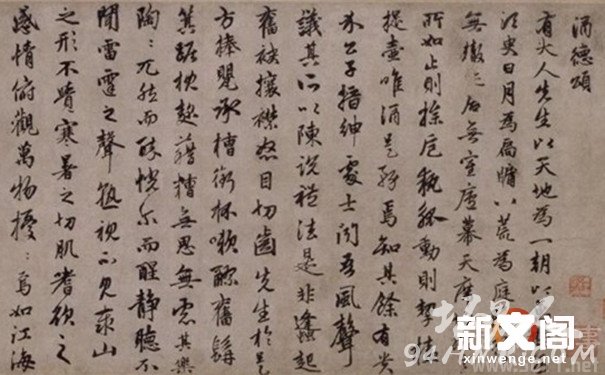 酒德頌
有大人先生以天地為一朝以
須臾日月為扃牖八荒為庭
無轍迹居無室廬幕天席
所如止則操卮執觚動則挈榼
提壺唯酒是務焉知其餘有貴
介公子搢紳處士聞吾風聲
議其所以陳說禮法是非蠭起
奮袂攘襟怒目切齒先生於是
方捧甖承槽銜杯漱醪奮髯
箕踞枕麴藉糟無思無慮其樂
陶:兀然而醉恍尔而醒靜聽不
聞雷霆之聲熟視不見泰山
之形不覺寒暑之切肌嗜欲之
感情俯觀萬物擾:焉如江海
新文阁
xinwenge.com